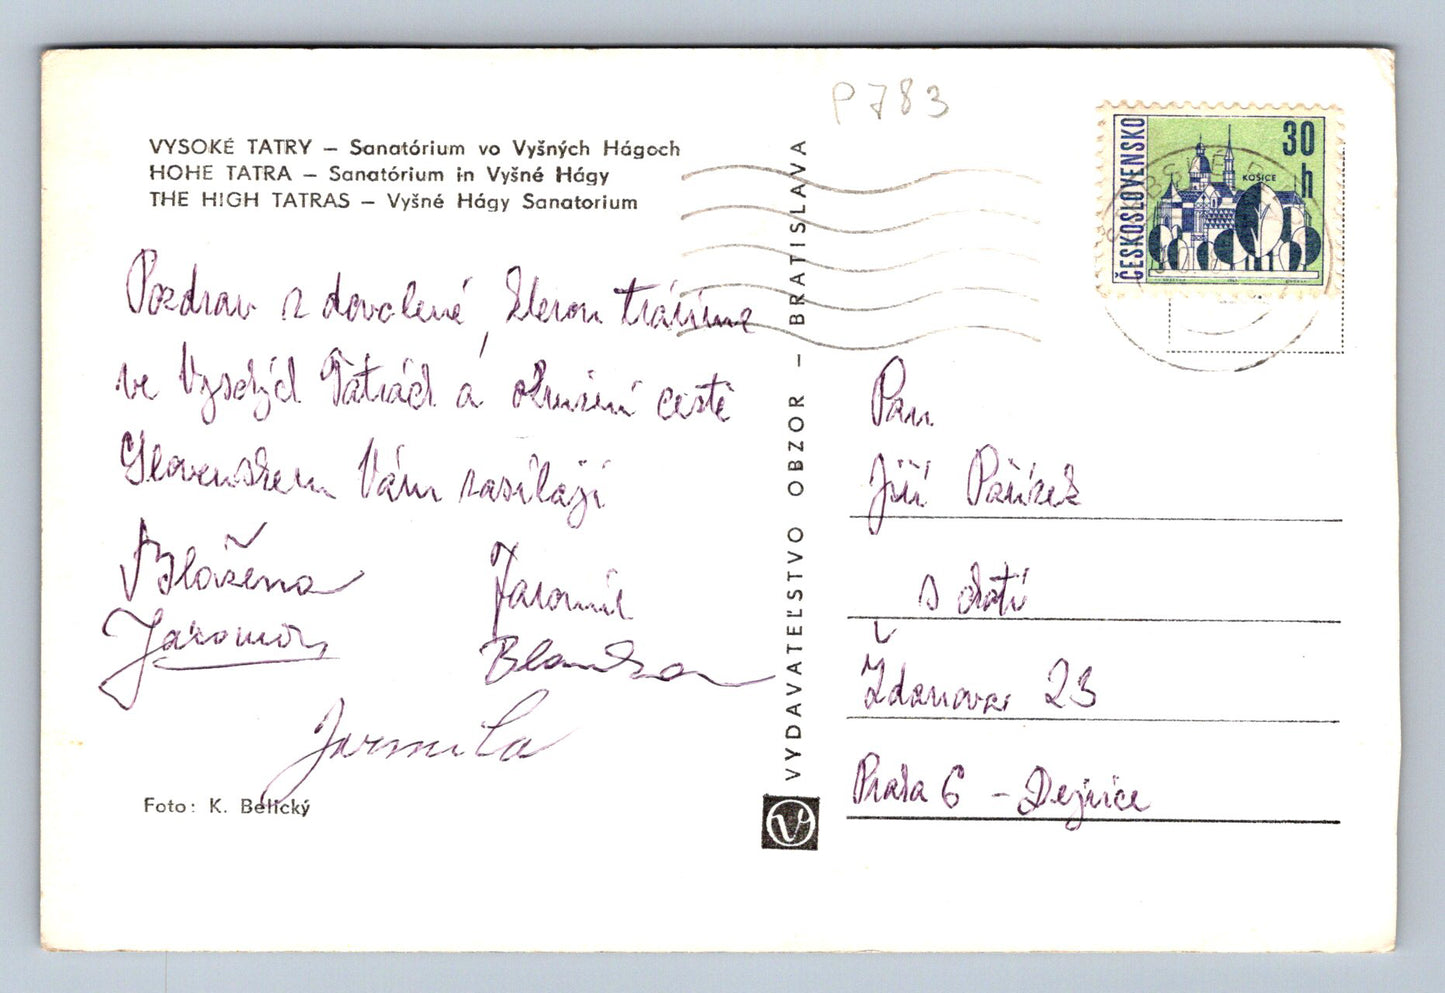 P783
VYSOKÉ TATRY – Sanatórium vo Vyšných Hágoch
HOHE TATRA – Sanatórium in Vyšné Hágy
THE HIGH TATRAS – Vyšné Hágy Sanatorium
Pozdrav z dovolené, kterou trávíme
ve Vysokých Tatrách a okružní cestě
Slovenskem Vám zasílají
Blažena
Jaromír
Jaromír
Blanka
Jarmila
Foto: K. Belický
VYDAVATEĽSTVO OBZOR – BRATISLAVA
V
ČESKOSLOVENSKO
30 h
KOŠICE
Pan
Jiří Pařízek
s chotí
Ždanova 23
Praha 6 – Dejvice